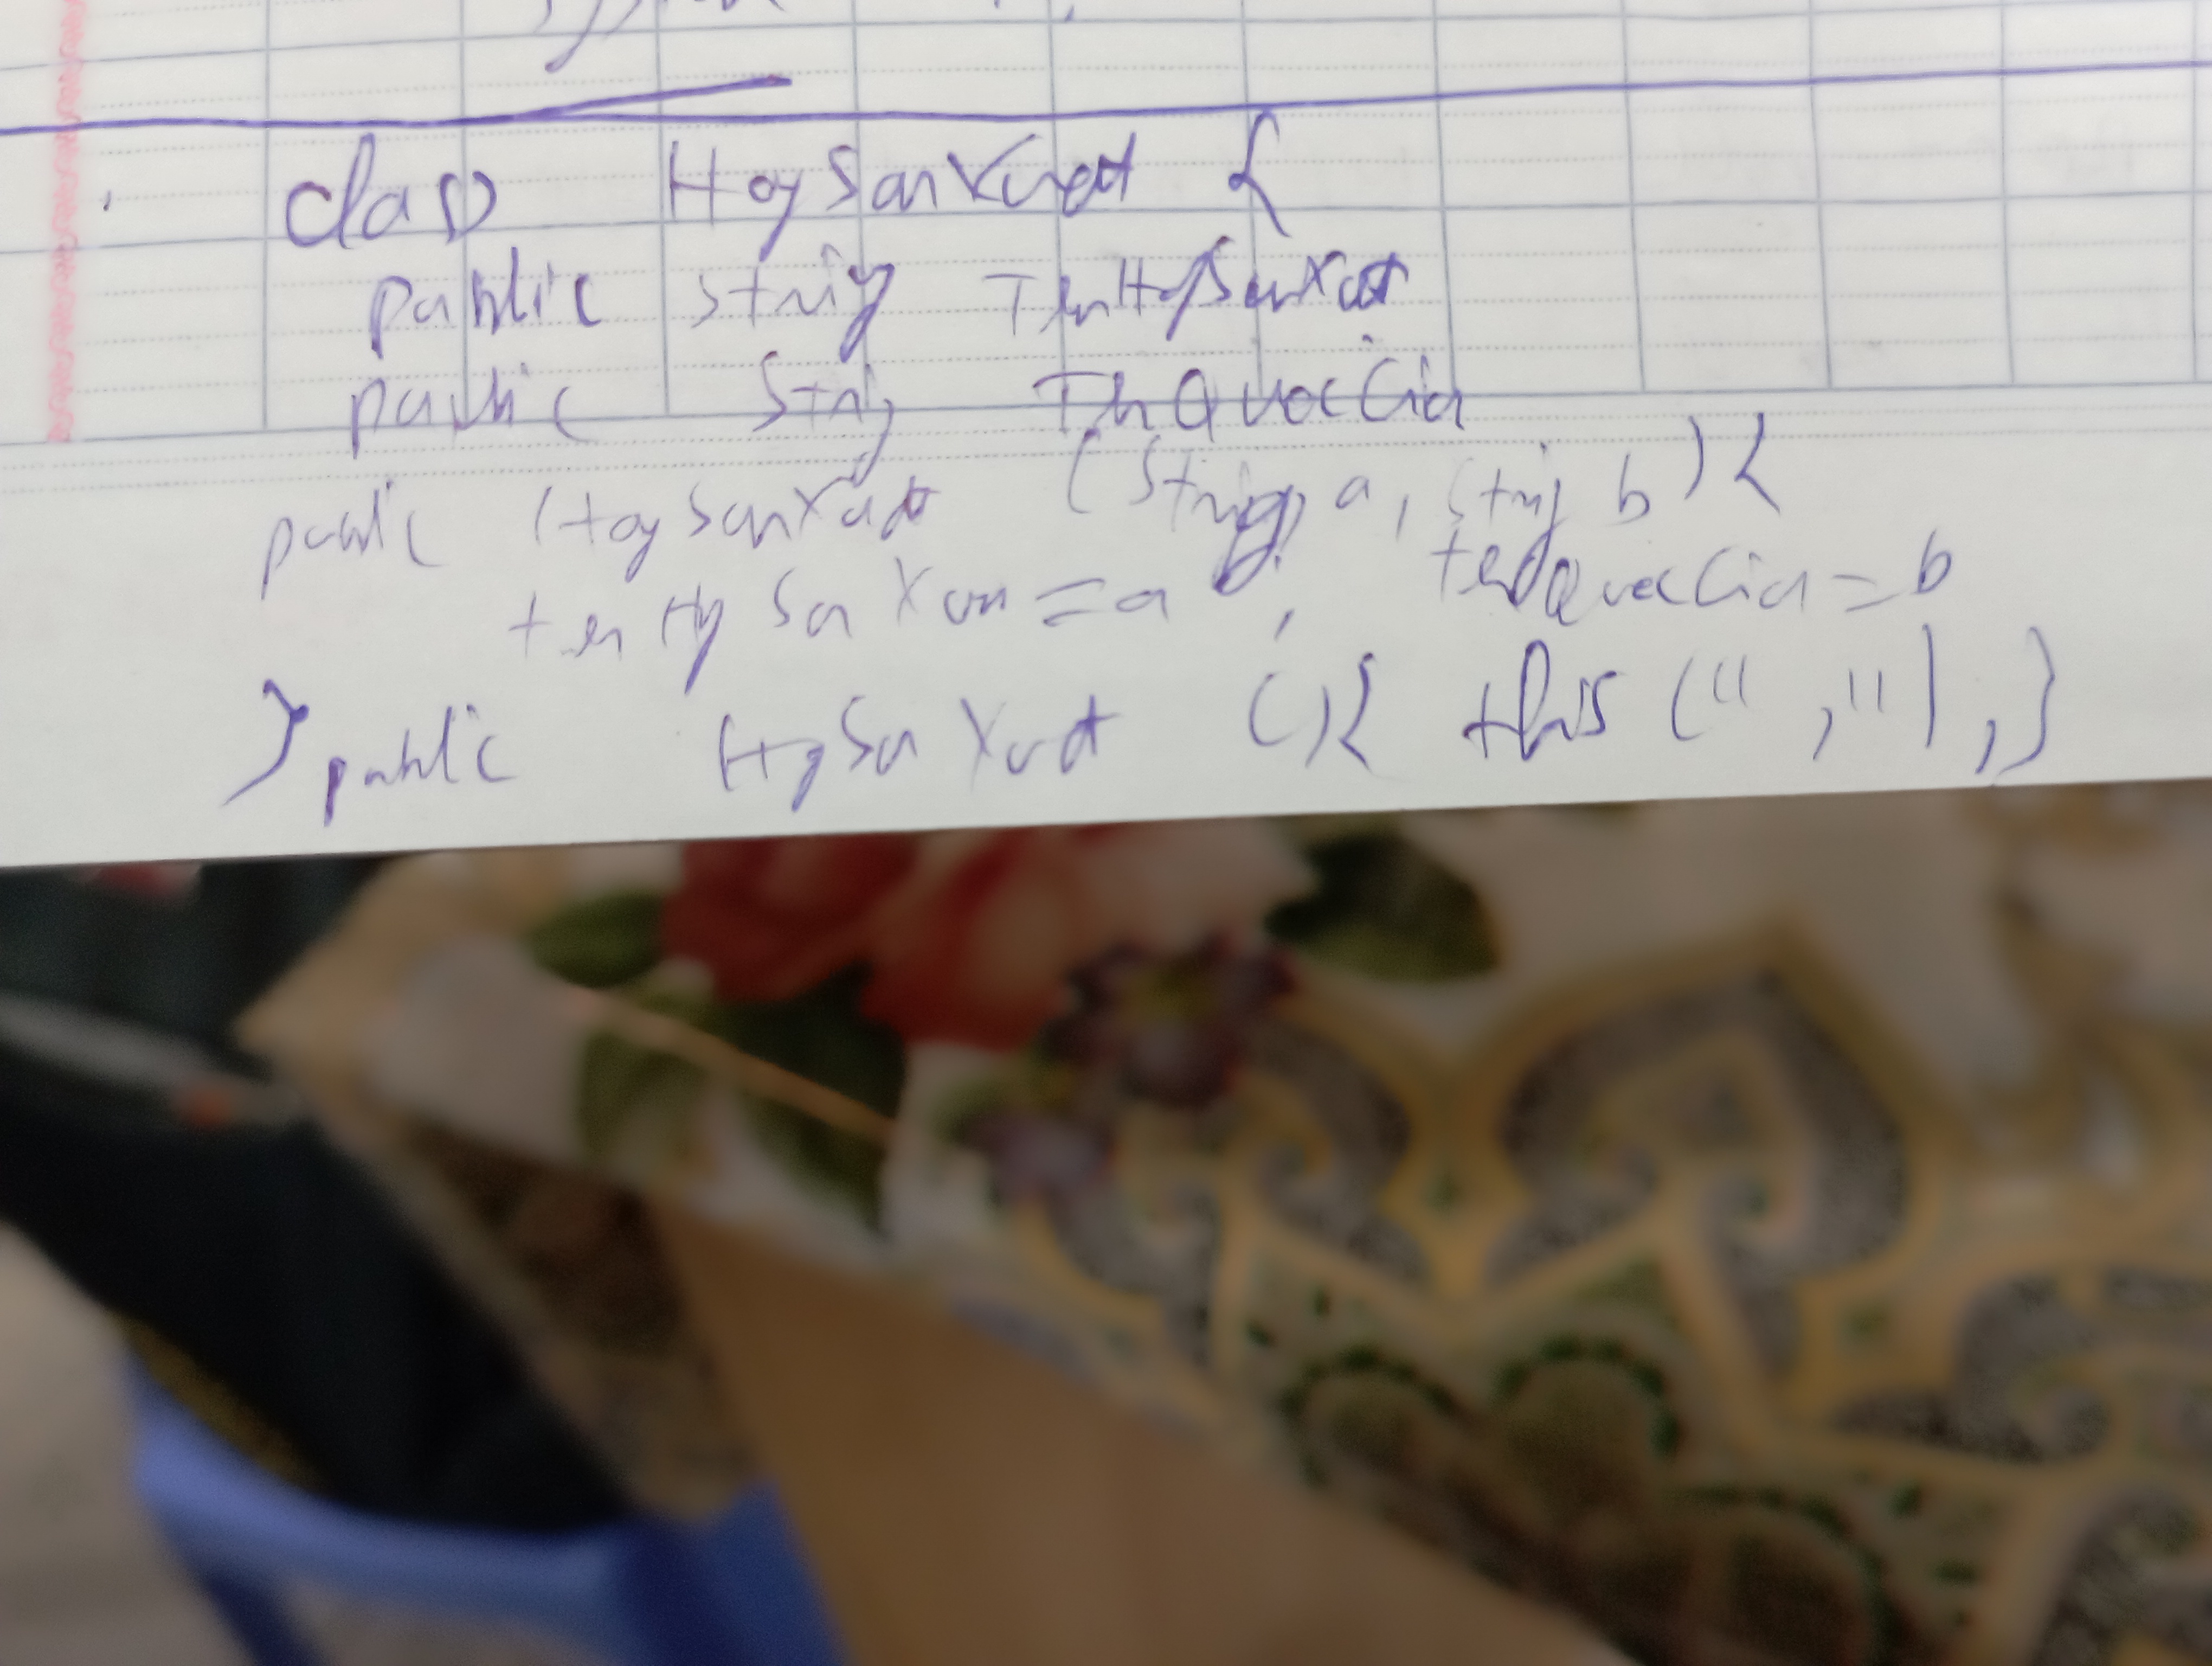 class HaySanXuat {
public String TenHaySanXuat
public String TenQuocGia
public HaySanXuat (String a, String b) {
tenHaySanXuat = a ; tenQuocGia = b
} public HaySanXuat () { this ("", ""); }